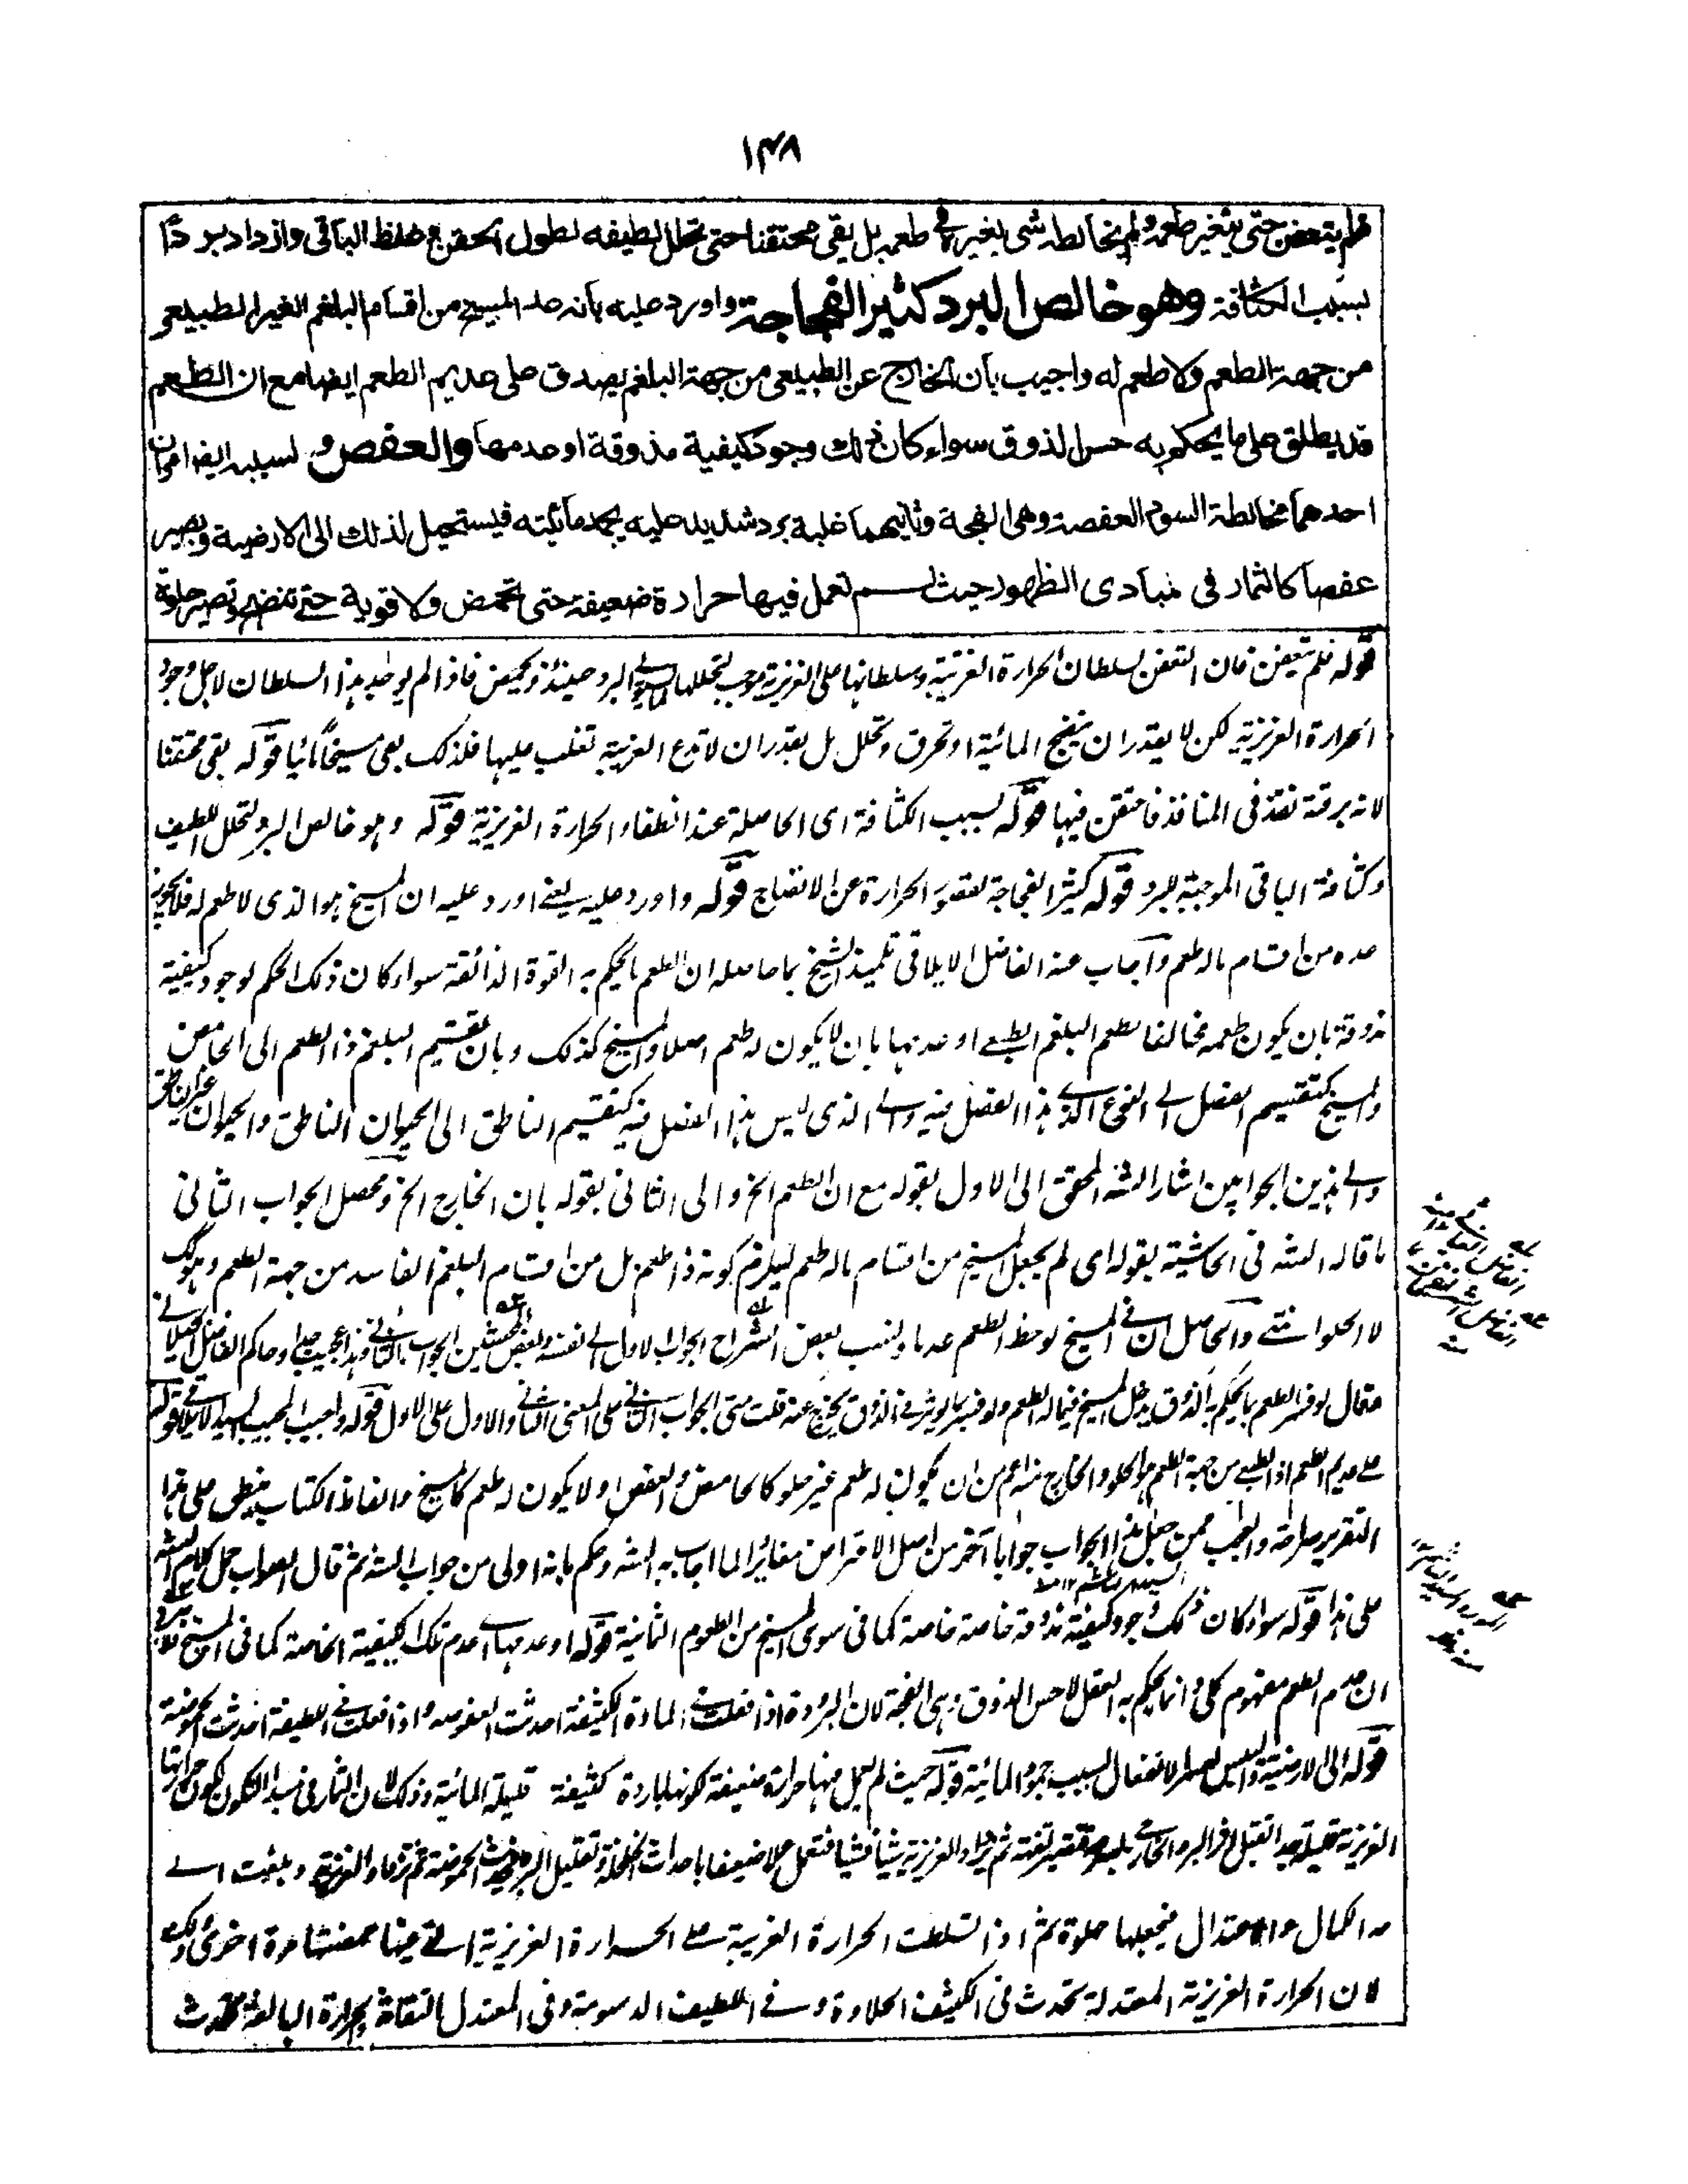 ١٤٨
فلم يتعفن حتى يتغير طعمه ولم يخالطه شى يغيره فى طعمه بل بقى محتقنا حتى تحلل لطيفه لطول الحقن وغلظ الباقى وازداد بردًا
بسبب الكثافة وهو خالص البرد كثير الفجاجة واورد عليه بانه عد المسيخ من اقسام البلغم الغير الطبيعى
من جهة الطعم ولا طعم له واجيب بان الخارج عن الطبيعى من جهة البلغم يصدق على عديم الطعم ايضا مع ان الطعم
قد يطلق على ما يحكم به حس الذوق سواء كان ذلك وجود كيفية مذوقة او عدمها والعفص و لسببه ايضا امران
احدهما مخالطة السوداء العفصة وهى الفجة وثانيهما غلبة برد شديد عليه يجمد مائيته فيستحيل لذلك الى الارضية ويصير
عفصا كالثمار فى مبادى الظهور حيث لم تعمل فيها حرارة ضعيفة حتى تحمض ولا قوية حتى تنضج وتصير حلوة
قوله فلم يتعفن فان التعفن لسلطان الحرارة الغريبة وسلطانها على الغريزية موجب لتحللها البرد حينئذ ويحمض فاذا لم يوجد هذا السلطان لاجل وجود
الحرارة الغريزية لكن لا يقدر ان ينضج المائية او تحرق وتحلل بل بقدر ان لا تدع الغريبة تغلب عليها فلذلك بقى مسيخا مائيا قوله بقى محتقنا
لانه برقته نفذ فى المنافذ فاحتقن فيها قوله بسبب الكثافة اى الحاصلة عند انطفاء الحرارة الغريزية قوله وهو خالص البرد لتحلل اللطيف
وكثافة الباقى الموجبة للبرد قوله كثير الفجاجة لقصور الحرارة عن الانضاج قوله واورد عليه يعنى اورد عليه ان المسيخ هو الذى لا طعم له فلا يجوز
عده من اقسام ماله طعم واجاب عنه الفاضل الايلاقى تلميذ الشيخ بما حاصله ان الطعم ما يحكم به القوة الذائقة سواء كان ذلك الحكم لوجود كيفية
مذوقة بان يكون طعمه مخالفا لطعم البلغم الطبيعى او عدمها بان لا يكون له طعم اصلا والمسيخ كذلك وبان تقسيم البلغم ذا الطعم الى الحامض
والمسيخ كتقسيم الفصل الى النوع الذى هذا الفصل فيه والى الذى ليس هذا الفصل فيه كتقسيم الناطق الى الحيوان الناطق والحيوان غير الناطق
والى هذين الجوابين اشار الشه المحقق الى الاول بقوله مع ان الطعم الخ والى الثانى بقوله بان الخارج الخ ومحصل الجواب الثانى
ما قاله الشه فى الحاشية بقوله اى لم يجعل المسيخ من اقسام ماله طعم ليلزم كونه ذا طعم بل من اقسام البلغم الفاسد من جهة الطعم وهو كك
لا الحلو انتهى والحاصل ان فى المسيخ لوحظ الطعم عدما ونسب بعض الشراح الجواب الاول الى نفسه وبعض المحشين الجواب الثانى وهذا عجيب جدا وحاكم الفاضل الجيلانى
فقال لو فسر الطعم بما يحكم به الذوق يدخل المسيخ فيما له الطعم ولو فسر بما يوثر فى الذوق يخرج عنه قلت مبنى الجواب الثانى على المعنى الثانى والاول على الاول قوله واجيب المجيب السيد الايلاقى قوله
على عديم الطعم اذ الطبيعى من جهة الطعم هو الحلو والخارج منه اعم من ان يكون له طعم غير حلو كالحامض والعفص او لا يكون له طعم كالمسيخ والفاظ الكتاب ينطبق على هذا
التقرير صراحة والعجب ممن جعل هذا الجواب جوابا آخر من اصل الاعتراض مغايرا لما اجاب به الشه وحكم بانه اولى من جواب الشه ثم قال الصواب حمل كلام الشه
على هذا قوله سواء كان ذلك وجود كيفية مذوقة خاصة خاصة كما فى سوى المسيخ من الطعوم الثمانية قوله او عدمها اى عدم تلك الكيفية الخاصة كما فى المسيخ
ان عدم الطعم مفهوم كلى وانما يحكم به العقل لا حس الذوق وهى الفجة لان البرودة اذا فعلت فى المادة الكثيفة احدثت العفوصة واذا فعلت فى اللطيفة احدثت الحموضة
قوله الى الارضية واليبس لعسر الانفعال بسبب جمود المائية قوله حيث لم تعمل فيها حرارة ضعيفة لكونها باردة كثيفة قليلة المائية وذلك لان الثمار فى مبدا التكون تكون حرارتها
الغريزية قليلة جدا ثم يزداد الغريزية شيئا فشيئا فتفعل فعلا ضعيفا باحداث الخلخلة وتقليل البرد فيحدث الحموضة ثم تزداد الغريزية وبلغت الى
حد الكمال والاعتدال فيجعلها حلوة ثم اذا تسلطت الحرارة الغريبة على الحرارة الغريزية التى فيها حمضتها مرة اخرى وذلك
لان الحرارة الغريزية المعتدلة تحدث فى الكثيف الحلاوة وفى اللطيف الدسومة وفى المعتدل التفاهة والحرارة البالغة تحدث